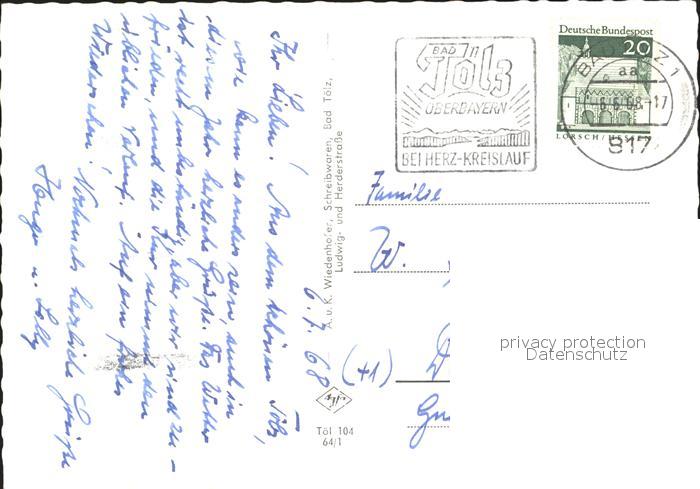 6.7.68
Ihr Lieben! Aus dem schönen Tölz,
wie kann es anders sein, auch in
diesem Jahr herzliche Grüße. Das Wetter
ist recht unbeständig, aber wir sind zu-
frieden, und die Kur nimmt den
üblichen Verlauf. Auf ein frohes
Wiedersehen! Nochmals herzliche Grüße
u. Lolly
A. u. K. Wiedenhofer, Schreibwaren, Bad Tölz,
Ludwig- und Herderstraße
Töl 104
64/1
BAD
Tölz
OBERBAYERN
BEI HERZ-KREISLAUF
Deutsche Bundespost
20
LORSCH/HESSEN
BAD TÖLZ 1
aa
-17
817
Familie
W.
(41) D
Gm
privacy protection
Datenschutz